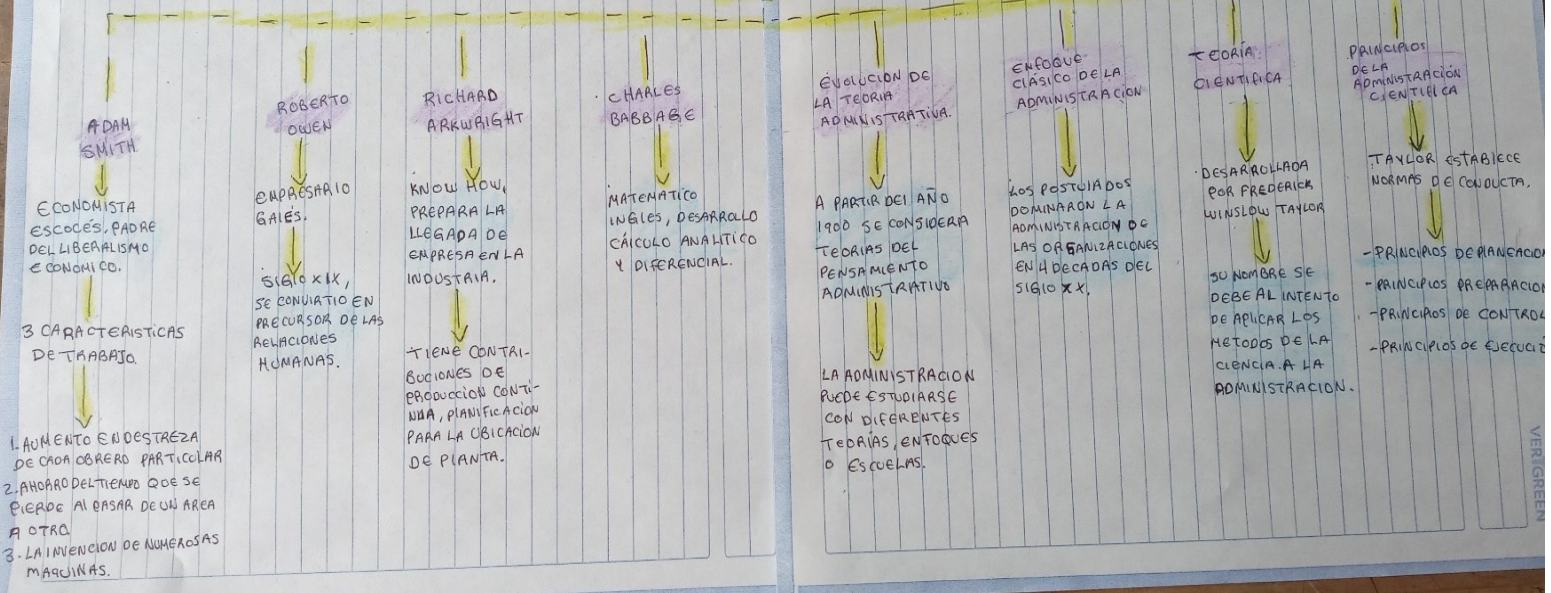 ADAM
SMITH
ECONOMISTA
ESCOCÉS, PADRE
DEL LIBERALISMO
ECONOMICO.
3 CARACTERISTICAS
DE TRABAJO.
1. AUMENTO EN DESTREZA
DE CADA OBRERO PARTICULAR
2. AHORRO DEL TIEMPO QUE SE
PIERDE AL PASAR DE UN AREA
A OTRA
3. LA INVENCION DE NUMEROSAS
MAQUINAS.
ROBERTO
OWEN
EMPRESARIO
GALÉS.
SIGLO XIX,
SE CONVIRTIO EN
PRECURSOR DE LAS
RELACIONES
HUMANAS.
RICHARD
ARKWRIGHT
KNOW HOW,
PREPARA LA
LLEGADA DE
EMPRESA EN LA
INDUSTRIA.
TIENE CONTRI-
BUCIONES DE
PRODUCCION CONTI-
NUA, PLANIFICACION
PARA LA UBICACION
DE PLANTA.
CHARLES
BABBAGE
MATEMATICO
INGLES, DESARROLLO
CÁLCULO ANALITICO
Y DIFERENCIAL.
EVOLUCION DE
LA TEORIA
ADMINISTRATIVA.
A PARTIR DEL AÑO
1900 SE CONSIDERA
TEORIAS DEL
PENSAMIENTO
ADMINISTRATIVO
LA ADMINISTRACION
PUEDE ESTUDIARSE
CON DIFERENTES
TEORÍAS, ENFOQUES
O ESCUELAS.
ENFOQUE
CLÁSICO DE LA
ADMINISTRACION
LOS POSTULADOS
DOMINARON LA
ADMINISTRACION DE
LAS ORGANIZACIONES
EN 4 DECADAS DEL
SIGLO XX.
TEORÍA
CIENTIFICA
DESARROLLADA
POR FREDERICK
WINSLOW TAYLOR
SU NOMBRE SE
DEBE AL INTENTO
DE APLICAR LOS
METODOS DE LA
CIENCIA A LA
ADMINISTRACION.
PRINCIPIOS
DE LA
ADMINISTRACIÓN
CIENTIFICA
TAYLOR ESTABLECE
NORMAS DE CONDUCTA.
- PRINCIPIOS DE PLANEACION
- PRINCIPIOS PREPARACION
- PRINCIPIOS DE CONTROL
- PRINCIPIOS DE EJECUCIÓ
VERIGREEN